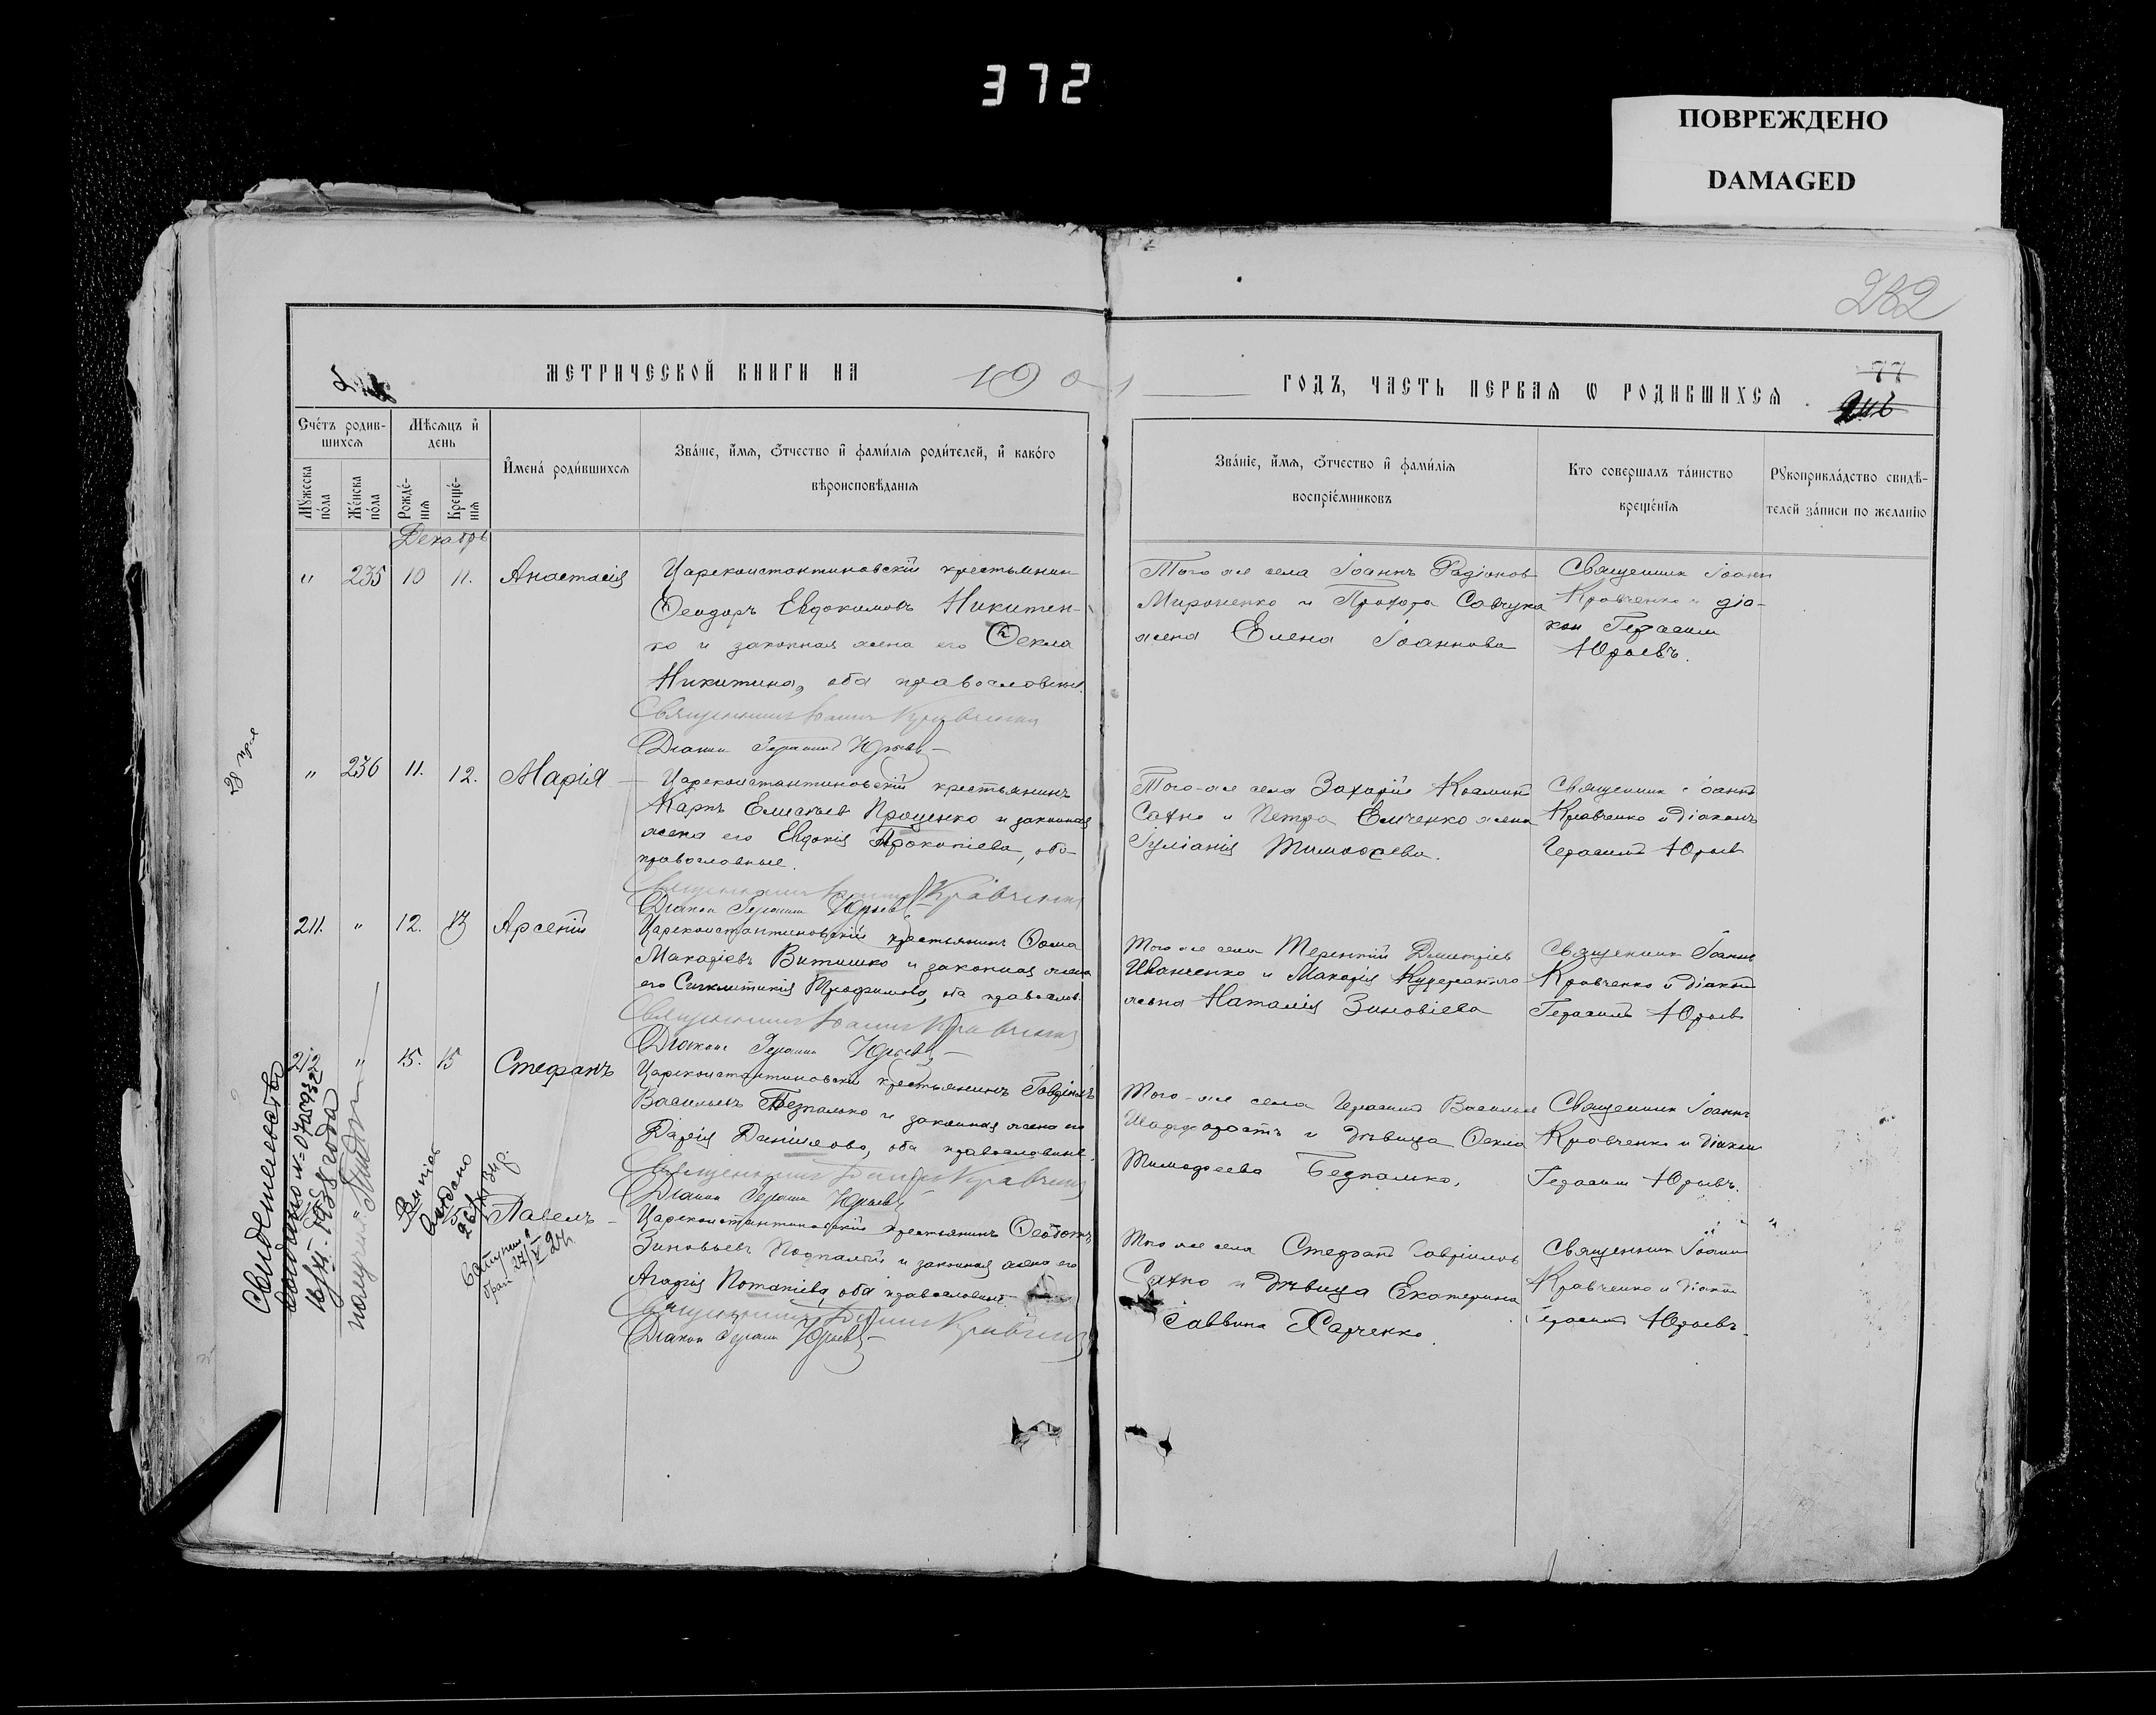 372
ПОВРЕЖДЕНО
DAMAGED
282
МЕТРИЧЕСКОЙ КНИГИ НА 1901
ГОДЪ, ЧАСТЬ ПЕРВАЯ Ѡ РОДИВШИХСЯ
77
Счетъ родив-
шихся
Мѣсяцъ и
день
Мужеска
пола
Женска
пола
Рожде-
нія
Креще-
нія
Имена родившихся
Званіе, имя, отчество и фамилія родителей, и какого
вѣроисповѣданія
Званіе, имя, отчество и фамилія
воспріемниковъ
Кто совершалъ таинство
крещенія
Рукоприкладство свидѣ-
телей записи по желанію
Декабрь
" 235 10 11. Анастасія
Цареконстантиновскій крестьянин
Ѳеодоръ Евдокимовъ Никитен-
ко и законная жена его Ѳекла
Никитина, оба православные.
Священникъ Іоаннъ Кравченко
Діаконъ Герасимъ Юрьевъ
Того же села Іоаннъ Радіонов
Мироненко и Прохора Савчука
жена Елена Іоаннова
Священник Іоанн
Кравченко и діа-
кон Герасим
Юрьевъ.
28 
" 236 11. 12. Марія
Цареконстантиновскій крестьянинъ
Карпъ Елисѣев Проценко и законная
жена его Евдокія Прокопіева, оба
православные.
Священникъ Іоаннъ Кравченко
Діакон Герасим Юрьевъ
Того-же села Захарій
Сахно и Петра Емченко жена
Іуліанія Тимоѳеева.
Священник Іоаннъ
Кравченко и діаконъ
Герасимъ Юрьев
211. " 12. 13 Арсеній
Цареконстантиновскій крестьянинъ Ѳома
Макаріевъ Витишко и законная жена
его Синклитикія Трофимова, оба православ.
Священникъ Іоаннъ Кравченко
Діаконъ Герасим Юрьевъ
Того же села Терентій Дмитріев
Иванченко и Макарія
жена Наталія Зиновіева
Священник Іоаннъ
Кравченко и діаконъ
Герасимъ Юрьев
212 " 15. 15 Стефанъ
Цареконстантиновскій крестьянинъ Гавріилъ
Васильевъ Безпалько и законная жена его
Дарія Даніилова, оба православные.
Священникъ Іоаннъ Кравченко
Діакон Герасим Юрьевъ
Того-же села Герасимъ Васильев
и дѣвица Ѳекла
Тимофеева Безпалько.
Священник Іоаннъ
Кравченко и діакон
Герасим Юрьевъ.
Свидетельство
выдано № 070593
16/XI-1938 года
получил
выдано
" 15 Павелъ
Цареконстантиновскій крестьянинъ
Зиновьевъ Подпалый и законная жена его
Агафія Потапіева, оба православные.
Священникъ Іоаннъ Кравченко
Діакон Герасим Юрьевъ
Того же села Стефанъ Гавріилов
Сахно и дѣвица Екатерина
Саввина Харченко.
Священник Іоанн
Кравченко и діакон
Герасимъ Юрьевъ.